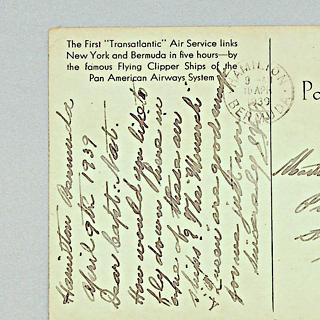 The First "Transatlantic" Air Service links
New York and Bermuda in five hours—by
the famous Flying Clipper Ships of the
Pan American Airways System
HAMILTON
10 AP
1939
BERMUDA
Po
Hamilton Bermuda
April 9th 1939
Dear Capt. Nat.
How would you like to
fly down there in
one of these air
ships? The Monarch
& Queen are good enough
for us just now
Sincerely